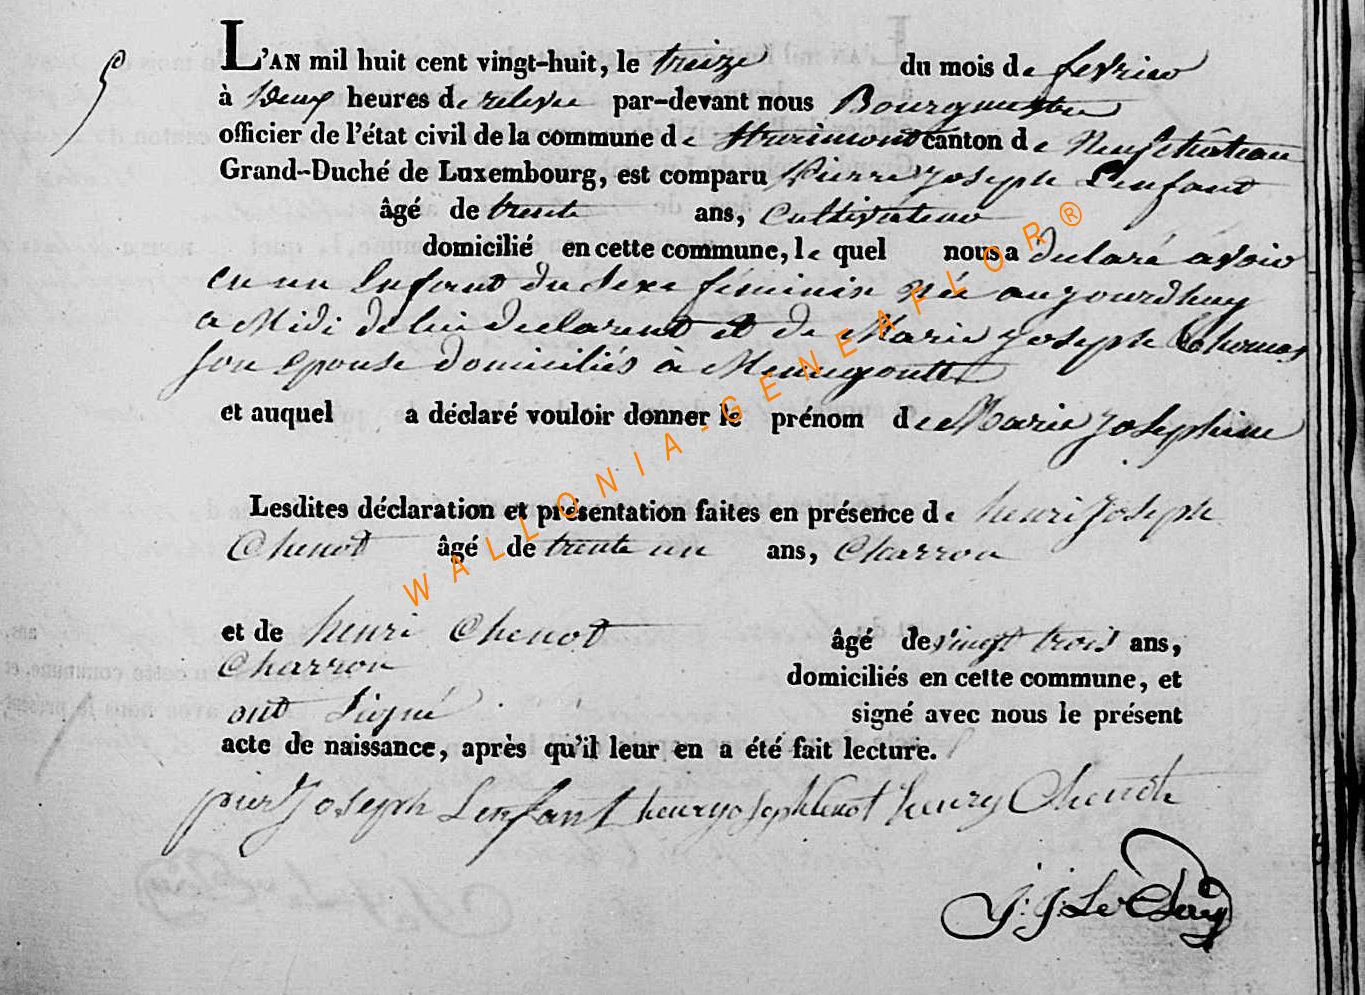 5
L'AN mil huit cent vingt-huit, le treize du mois de fevrier
à deux heures de relevée par-devant nous Bourgmestre
officier de l'état civil de la commune de canton de Neufchateau
Grand-Duché de Luxembourg, est comparu Pierre Joseph Lenfant
âgé de trente ans, Cultivateur
domicilié en cette commune, le quel nous a declaré avoir
eu un Enfant du sexe féminin née aujourdhuy
a Midi de lui declarant et de Marie Joseph Thomas
son epouse domiciliés à
et auquel a déclaré vouloir donner le prénom de Marie Josephine
Lesdites déclaration et présentation faites en présence de henri Joseph
Chenot âgé de trente un ans, Charron
et de henri Chenot âgé de vingt trois ans,
Charron domiciliés en cette commune, et
ont signé signé avec nous le présent
acte de naissance, après qu'il leur en a été fait lecture.
pier Joseph Lenfant henry Chenot
WALLONIA-GENEAFLOR®